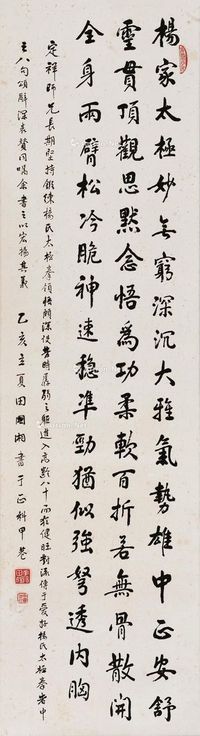 楊家太極妙無窮深沉大雅氣勢雄中正安舒
靈貫頂觀思默念悟為功柔軟百折若無骨散開
全身兩臂松冷脆神速穩準勁猶似強弩透內胸
定祥師兄長期堅持鍛練楊氏太極拳領悟頗深
進入高齡八十而猶健旺
愛好楊氏太極拳者中
之八句頌辭深表贊同囑余書之以宏揚其義
乙亥立夏田國湘書于正科甲巷